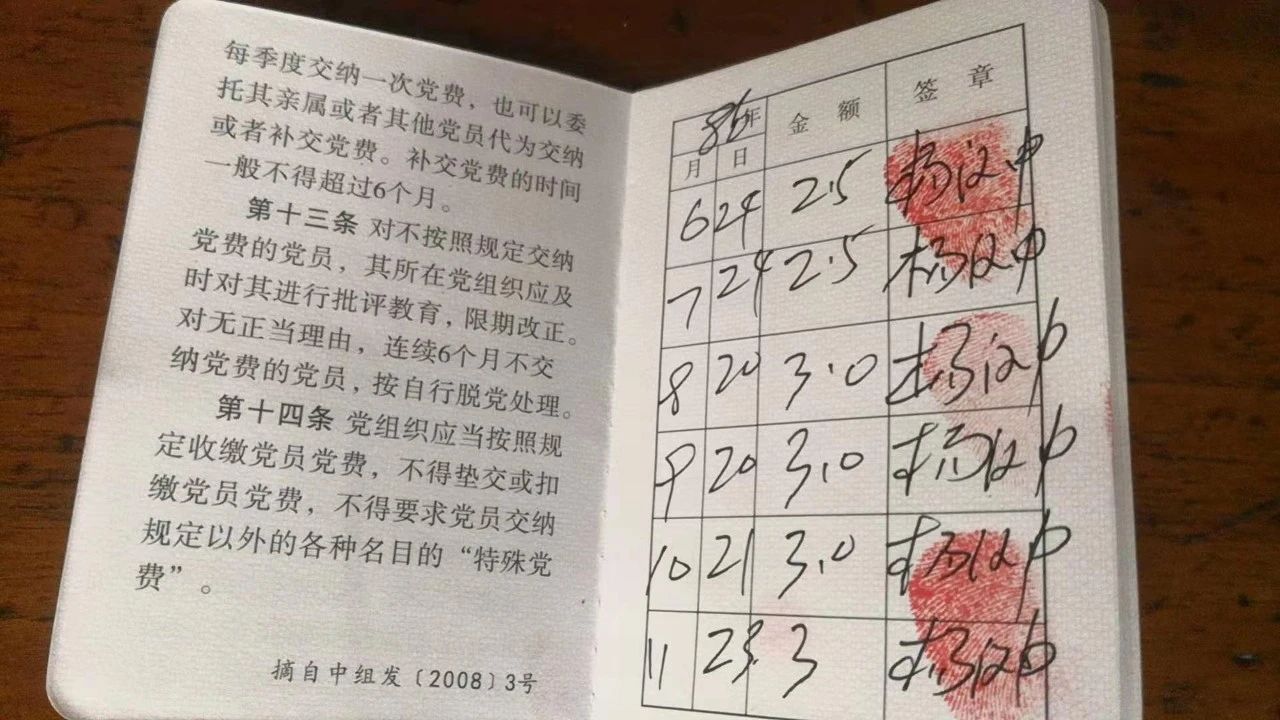 每季度交纳一次党费，也可以委
托其亲属或者其他党员代为交纳
或者补交党费。补交党费的时间
一般不得超过6个月。
第十三条 对不按照规定交纳
党费的党员，其所在党组织应及
时对其进行批评教育，限期改正。
对无正当理由，连续6个月不交
纳党费的党员，按自行脱党处理。
第十四条 党组织应当按照规
定收缴党员党费，不得垫交或扣
缴党员党费，不得要求党员交纳
规定以外的各种名目的“特殊党
费”。
摘自中组发〔2008〕3号
86年 金额 签章
月 日
6 24 2.5
7 24 2.5
8 20 3.0
9 20 3.0
10 21 3.0
11 23 3